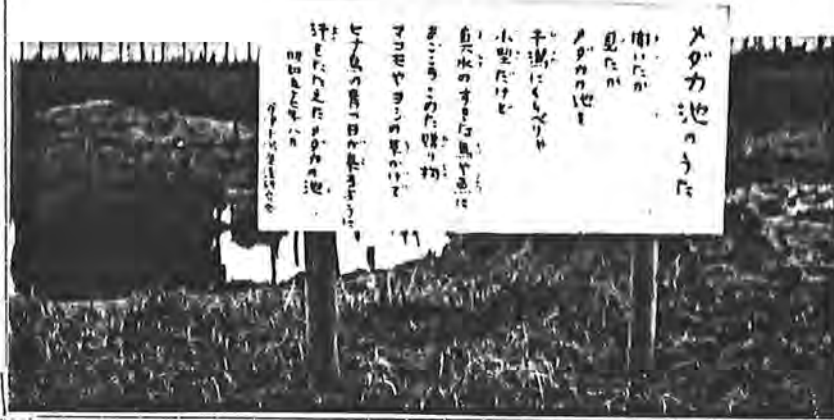 メダカ池のうた
聞いたか
見たか
メダカ池を
干潟にくらべりゃ
小型だけど
真水のすきな鳥や魚に
まごころこめた贈り物
マコモやヨシの草かげで
ヒナ鳥の育つ日が来るように
汗をたたえたメダカの池